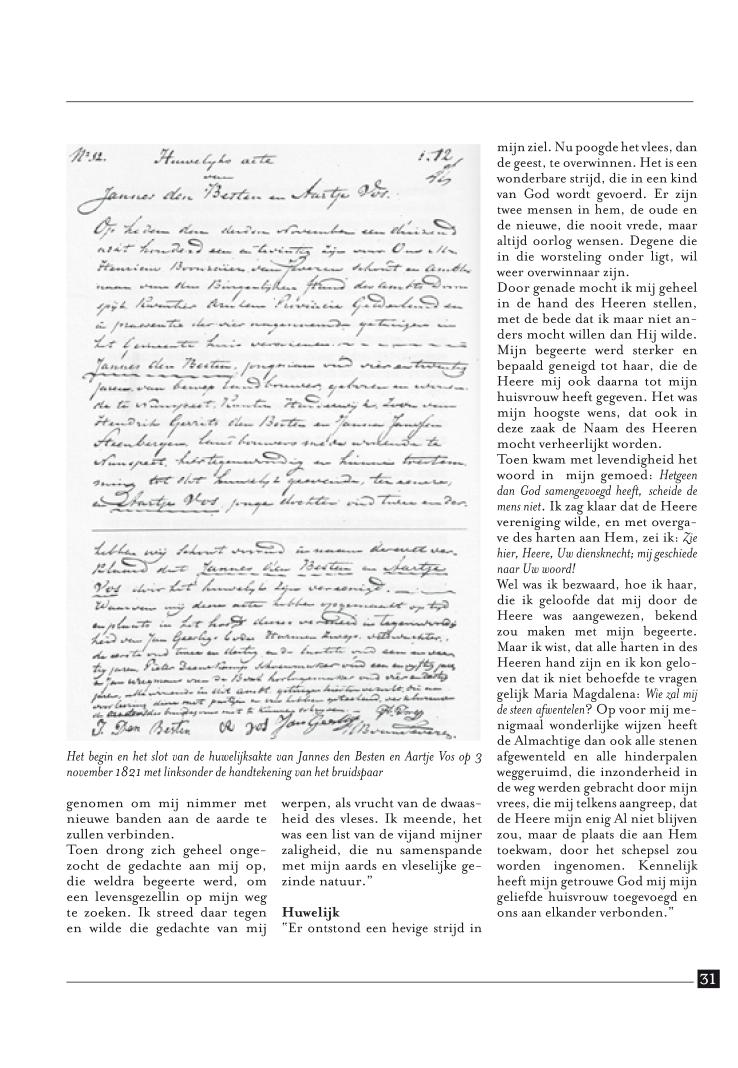 Nº 52.
Huwelijks acte
van
Jannes den Besten en Aartje Vos.
Op heden den derden November een duizend
acht honderd een en twintig zijn voor Ons
schout en
den Burgerlijken Stand des Ambts
Arnhem Provincie Gelderland en
in praesentie der vier nagenoemde getuigen in
het Gemeente huis verschenen
Jannes den Besten, jongman oud vier en twintig
jaren, van beroep landbouwer, geboren en
de te Nunspeet, Zoon van
Hendrik Gerrits den Besten en Jansen
Steenbergen, landbouwers mede wonende te
Nunspeet, hier tegenwoordig en hunne toestem
ming tot dit huwelijk gevende, ter
en Aartje Vos, jonge dochter oud twee en der
hebben wij Schout voornd in naam der wet ver
klaard dat Jannes den Besten en Aartje
Vos door het huwelijk zijn vereenigd.
Waarvan wij deze acte hebben opgemaakt op tijd
en plaats in het hoofd dezes vermeld in tegenwoordig
heid van Jan
de eerste oud twee en dertig en de
tig jaren, Pieter Schoenmaker oud een en vijftig jaren
J. Den Besten
A Vos
Het begin en het slot van de huwelijksakte van Jannes den Besten en Aartje Vos op 3
november 1821 met linksonder de handtekening van het bruidspaar
genomen om mij nimmer met
nieuwe banden aan de aarde te
zullen verbinden.
Toen drong zich geheel onge-
zocht de gedachte aan mij op,
die weldra begeerte werd, om
een levensgezellin op mijn weg
te zoeken. Ik streed daar tegen
en wilde die gedachte van mij
werpen, als vrucht van de dwaas-
heid des vleses. Ik meende, het
was een list van de vijand mijner
zaligheid, die nu samenspande
met mijn aards en vleselijke ge-
zinde natuur.”
Huwelijk
“Er ontstond een hevige strijd in
mijn ziel. Nu poogde het vlees, dan
de geest, te overwinnen. Het is een
wonderbare strijd, die in een kind
van God wordt gevoerd. Er zijn
twee mensen in hem, de oude en
de nieuwe, die nooit vrede, maar
altijd oorlog wensen. Degene die
in die worsteling onder ligt, wil
weer overwinnaar zijn.
Door genade mocht ik mij geheel
in de hand des Heeren stellen,
met de bede dat ik maar niet an-
ders mocht willen dan Hij wilde.
Mijn begeerte werd sterker en
bepaald geneigd tot haar, die de
Heere mij ook daarna tot mijn
huisvrouw heeft gegeven. Het was
mijn hoogste wens, dat ook in
deze zaak de Naam des Heeren
mocht verheerlijkt worden.
Toen kwam met levendigheid het
woord in mijn gemoed: Hetgeen
dan God samengevoegd heeft, scheide de
mens niet. Ik zag klaar dat de Heere
vereniging wilde, en met overga-
ve des harten aan Hem, zei ik: Zie
hier, Heere, Uw dienstknecht; mij geschiede
naar Uw woord!
Wel was ik bezwaard, hoe ik haar,
die ik geloofde dat mij door de
Heere was aangewezen, bekend
zou maken met mijn begeerte.
Maar ik wist, dat alle harten in des
Heeren hand zijn en ik kon gelo-
ven dat ik niet behoefde te vragen
gelijk Maria Magdalena: Wie zal mij
de steen afwentelen? Op voor mij me-
nigmaal wonderlijke wijzen heeft
de Almachtige dan ook alle stenen
afgewenteld en alle hinderpalen
weggeruimd, die inzonderheid in
de weg werden gebracht door mijn
vrees, die mij telkens aangreep, dat
de Heere mijn enig Al niet blijven
zou, maar de plaats die aan Hem
toekwam, door het schepsel zou
worden ingenomen. Kennelijk
heeft mijn getrouwe God mij mijn
geliefde huisvrouw toegevoegd en
ons aan elkander verbonden.”
31